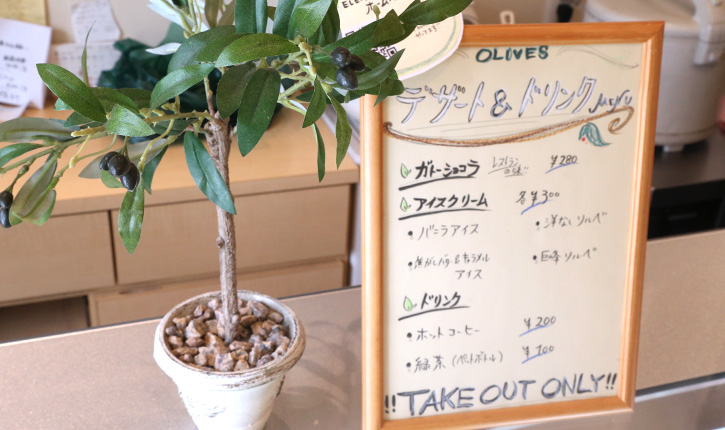 OLIVES
デザート&ドリンク MENU
ガトーショコラ レストランの味 ¥280
アイスクリーム 各¥300
・バニラアイス ・洋なしソルベ
・焦がしバター&キャラメルアイス ・巨峰ソルベ
ドリンク
・ホットコーヒー ¥200
・緑茶(ペットボトル) ¥100
!!TAKE OUT ONLY!!